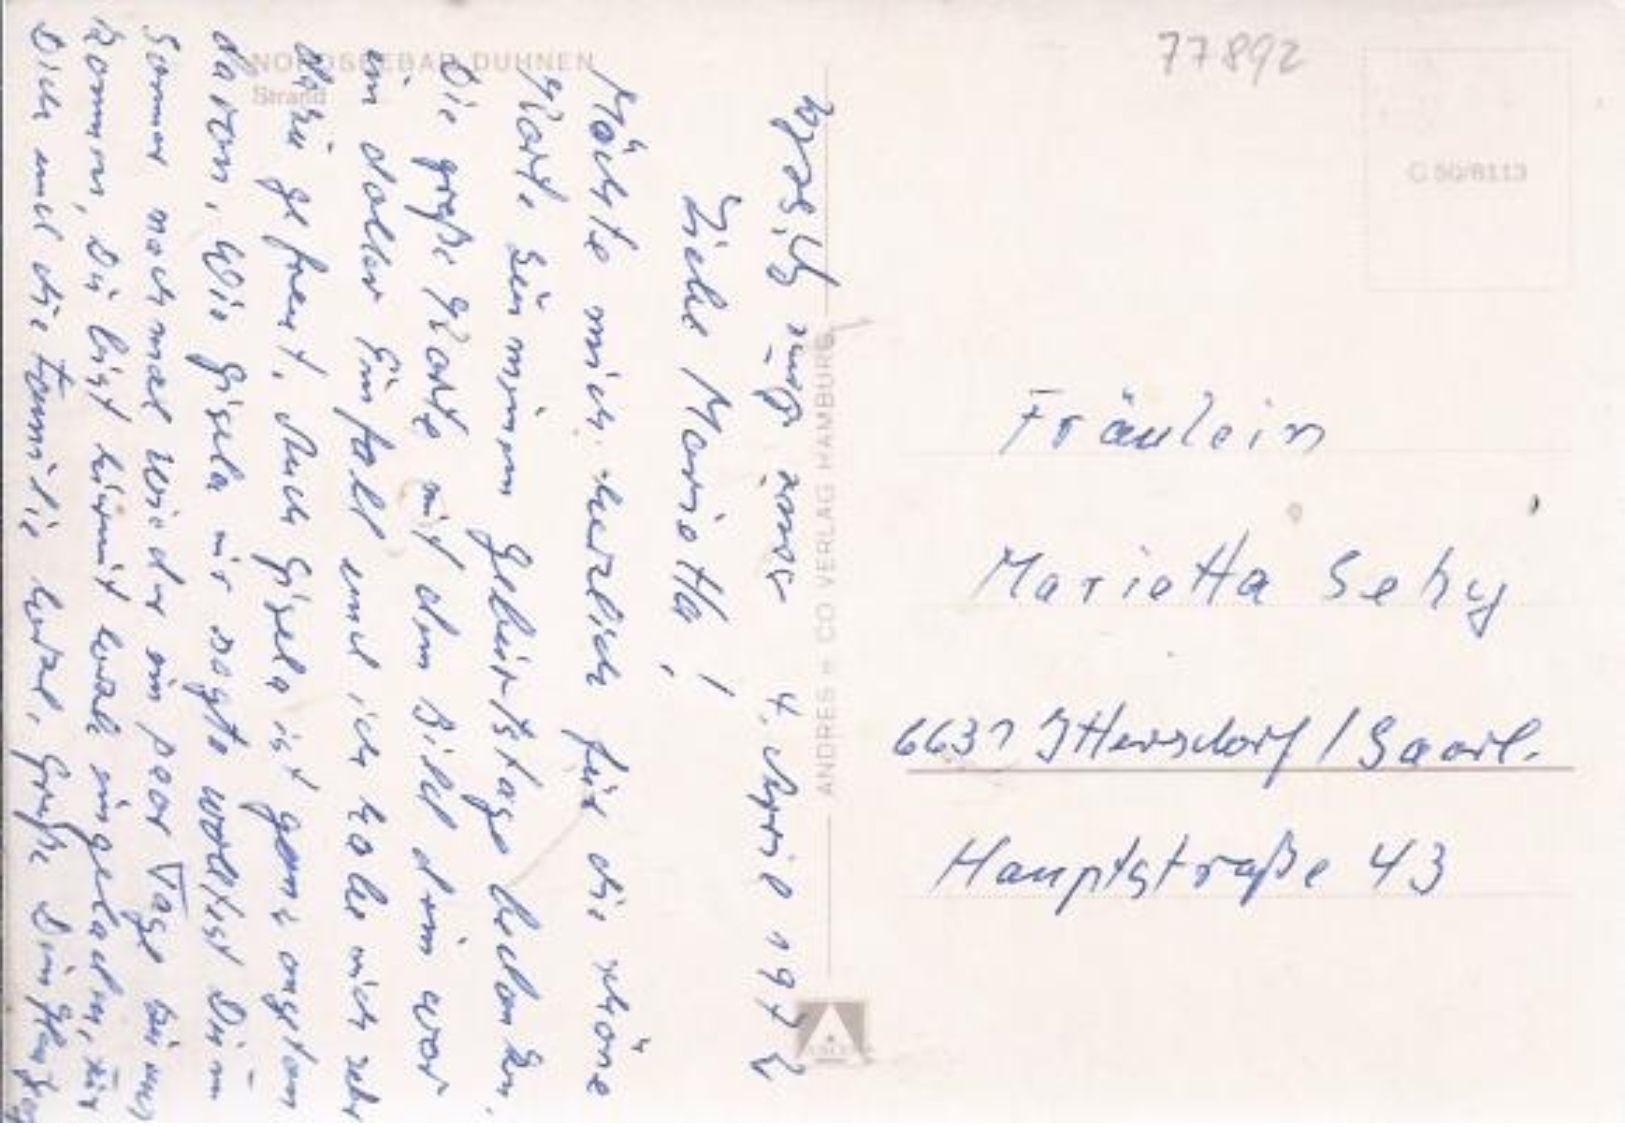 NORDSEEBAD DUHNEN
Strand
4. April 1972
Liebe Marietta!
Möchte mich herzlich für die schöne
Karte zu meinem Geburtstage bedanken.
Die große Karte mit dem Bild drin war
ein doller Einfall und ich habe mich sehr
gefreut. Auch Gisela ist ganz angetan
davon, wie Gisela mir sagte wolltest Du im
Sommer noch mal wieder ein paar Tage zu uns
kommen, Du bist hiermit herzl. eingeladen, für
Dich und die Familie herzl. Grüße
ANDRES + CO VERLAG HAMBURG
77892
C 50/8113
Fräulein
Marietta Sehy
6631 Ittersdorf / Saarl.
Hauptstraße 43